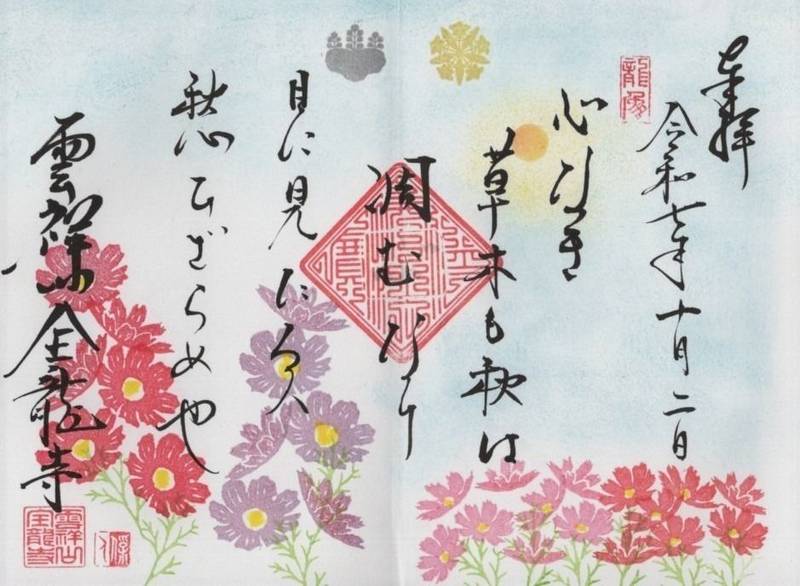 奉拝
令和七年十月二日
心なき
草木も秋は
凋むなり
目に見たる人
愁ひざらめや
雲祥山全龍寺
雲祥山
全龍寺